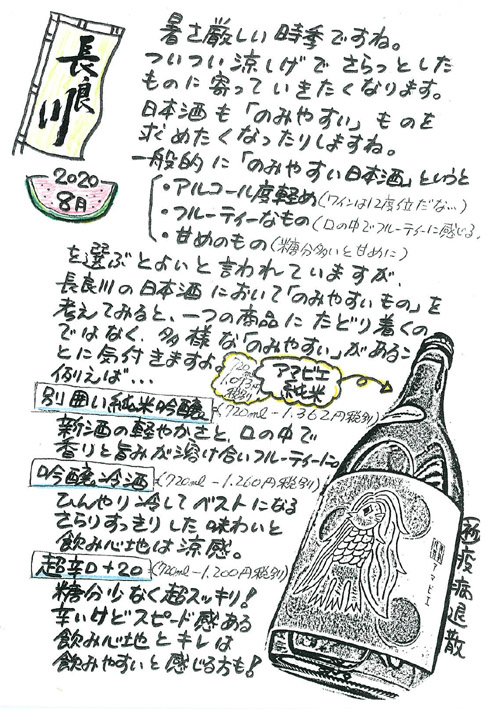 長良川
2020
8月
暑さ厳しい時季ですね。
ついつい涼しげでさらっとした
ものに寄っていきたくなります。
日本酒も「のみやすい」ものを
求めたくなったりしますね。
一般的に「のみやすい日本酒」というと
・アルコール度軽め(ワインは12度位だな…)
・フルーティーなもの(口の中でフルーティーに感じる)
・甘めのもの(糖分多いと甘めに)
を選ぶとよいと言われていますが、
長良川の日本酒において「のみやすいもの」を
考えてみると、一つの商品にたどり着くの
ではなく、多様な「のみやすい」があるこ
とに気付きますよ。
例えば…
720ml
1,013円
税別
アマビエ
純米
別囲い純米吟醸(720ml-1.362円税別)
新酒の軽やかさと、口の中で
香りと旨みが溶け合いフルーティーに。
吟醸冷酒(720ml-1.260円税別)
ひんやり冷してベストになる
さらりすっきりした味わいと
飲み心地は涼感。
超辛口+20(720ml-1.200円税別)
糖分少なく超スッキリ!
辛いけどスピード感ある
飲み心地とキレは
飲みやすいと感じる方も!
アマビエ
疫病退散